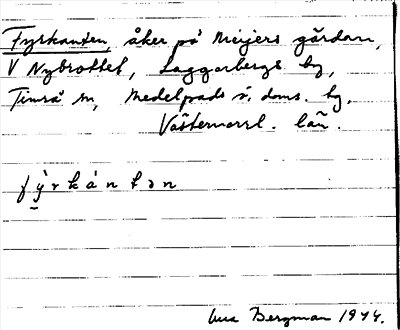 Fyrkanten, åker på Meijers gården,
V Nybrottet, Laggarbergs by,
Timrå sn, Medelpads v. doms. by,
Västernorrl. län.
fỳrkán tən
Bergman 1944.